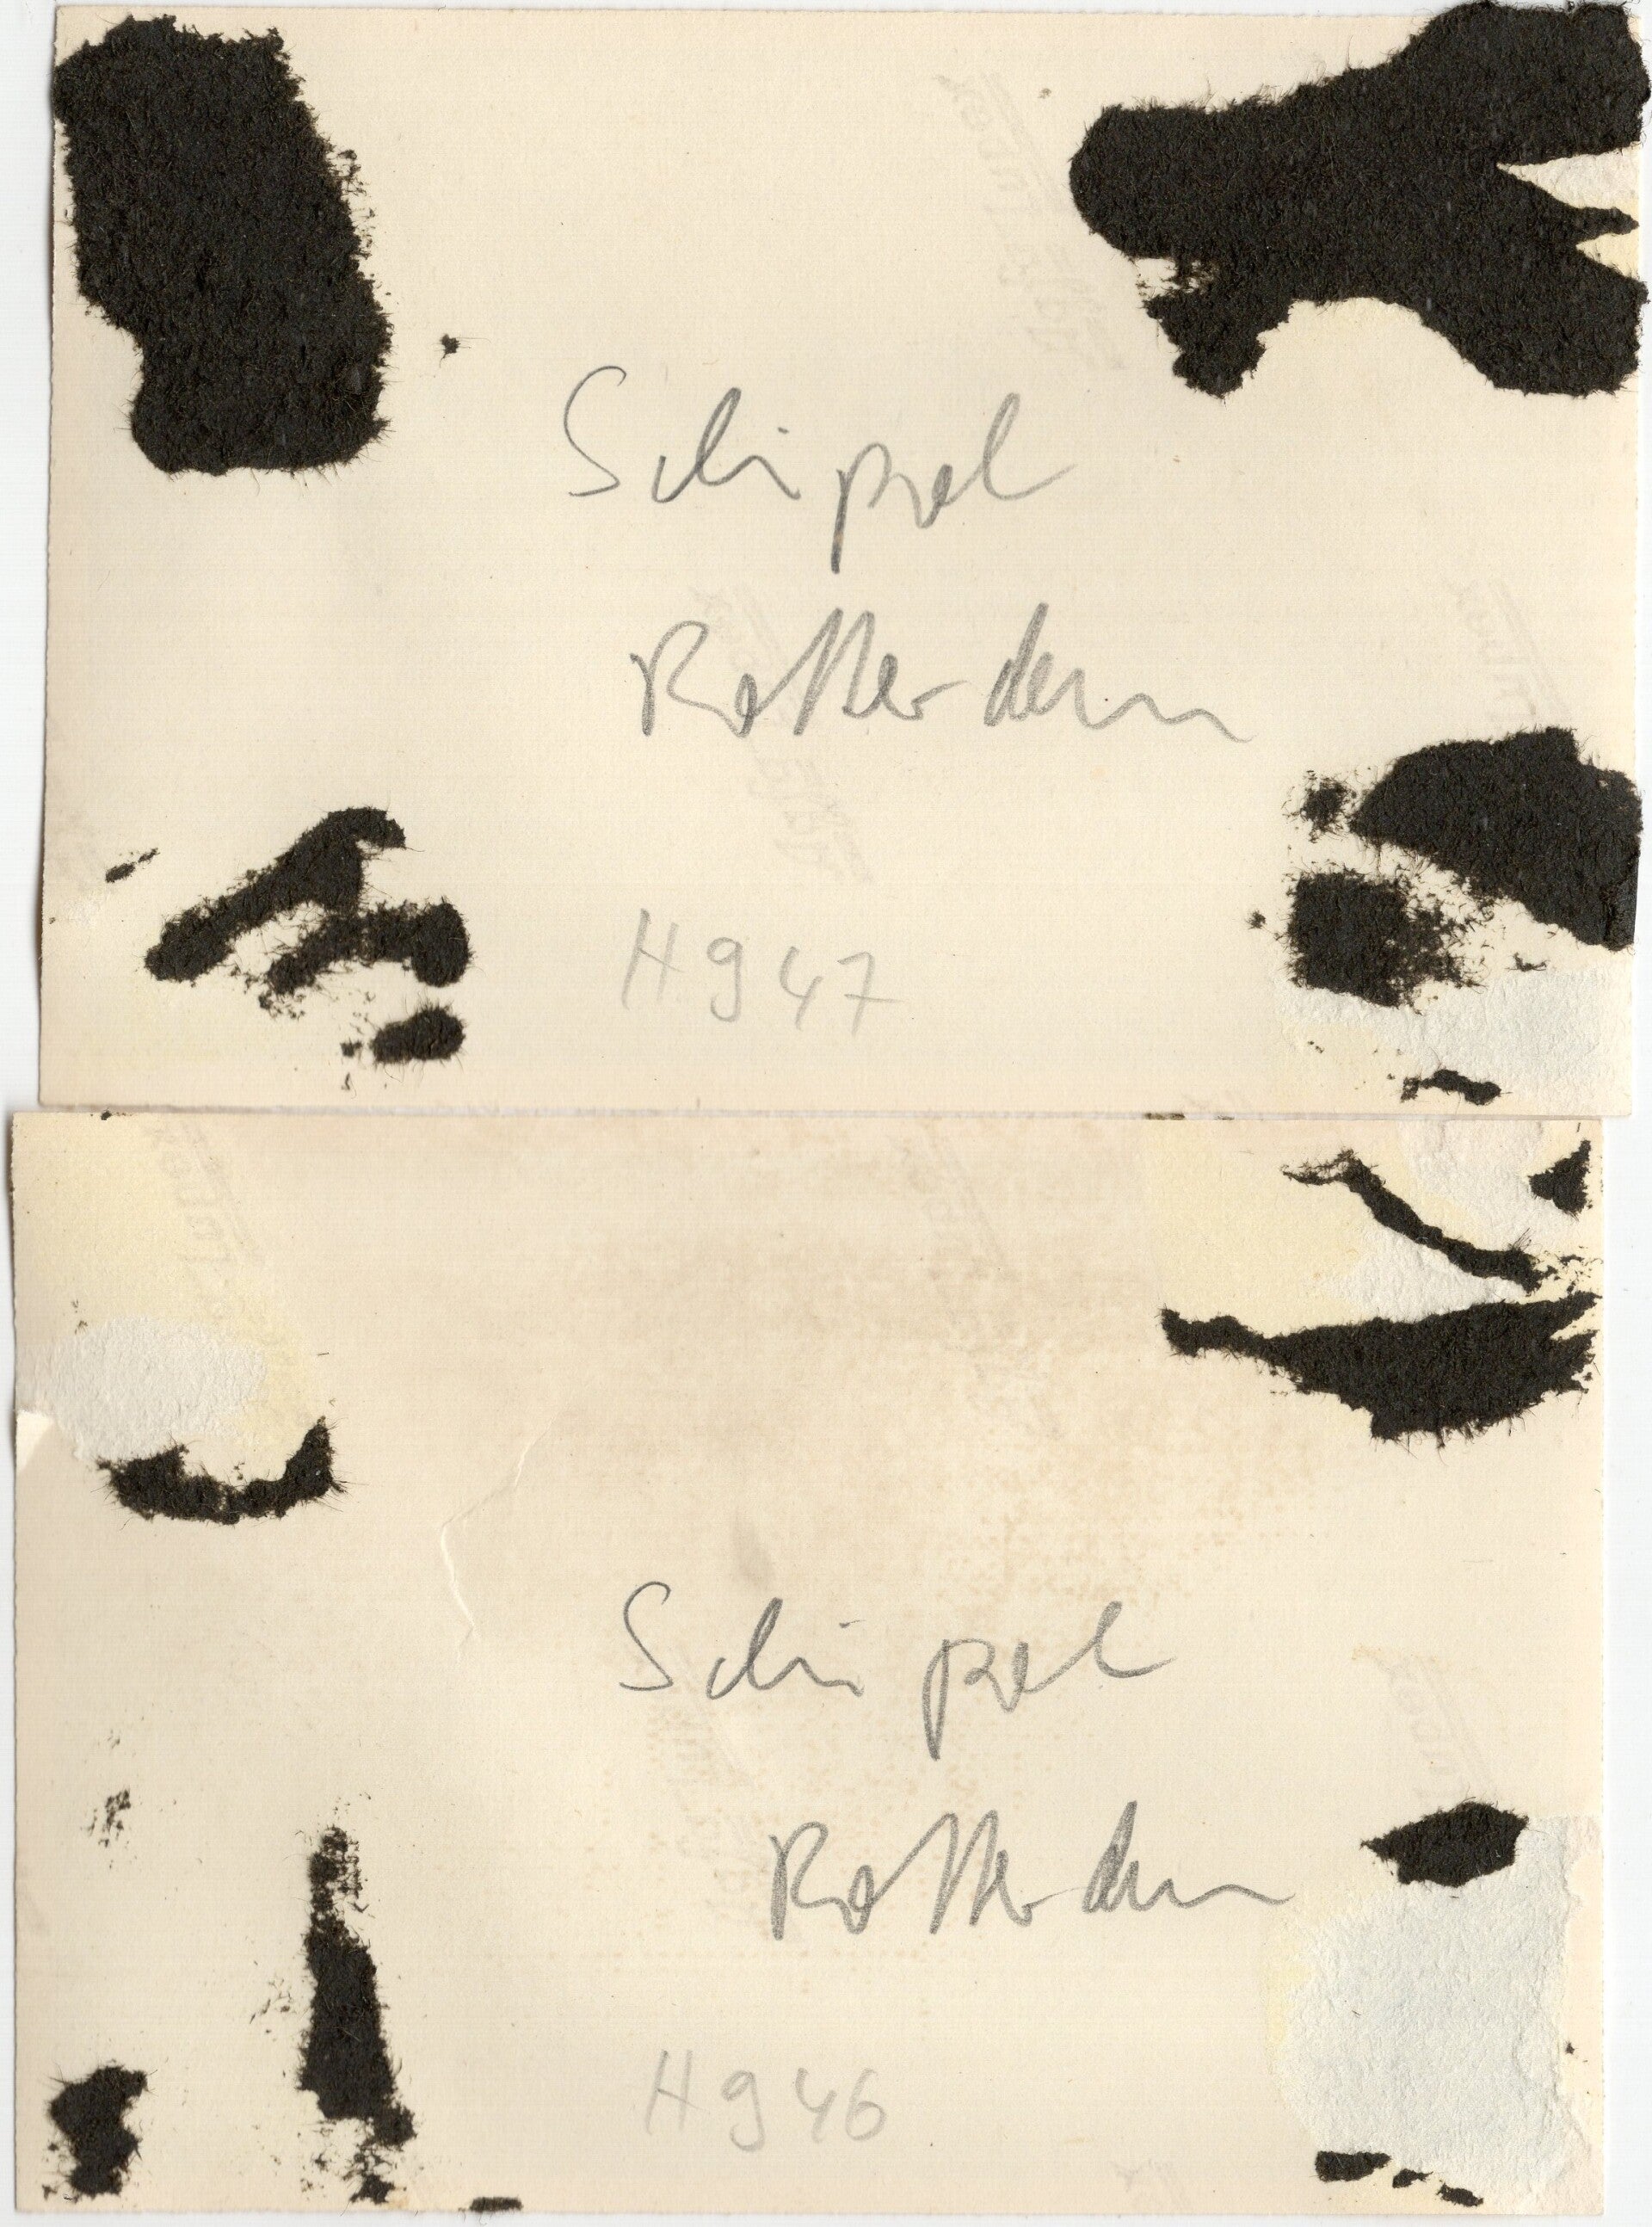 Schipsel
Rotterdam
H947
Schipsel
Rotterdam
H946